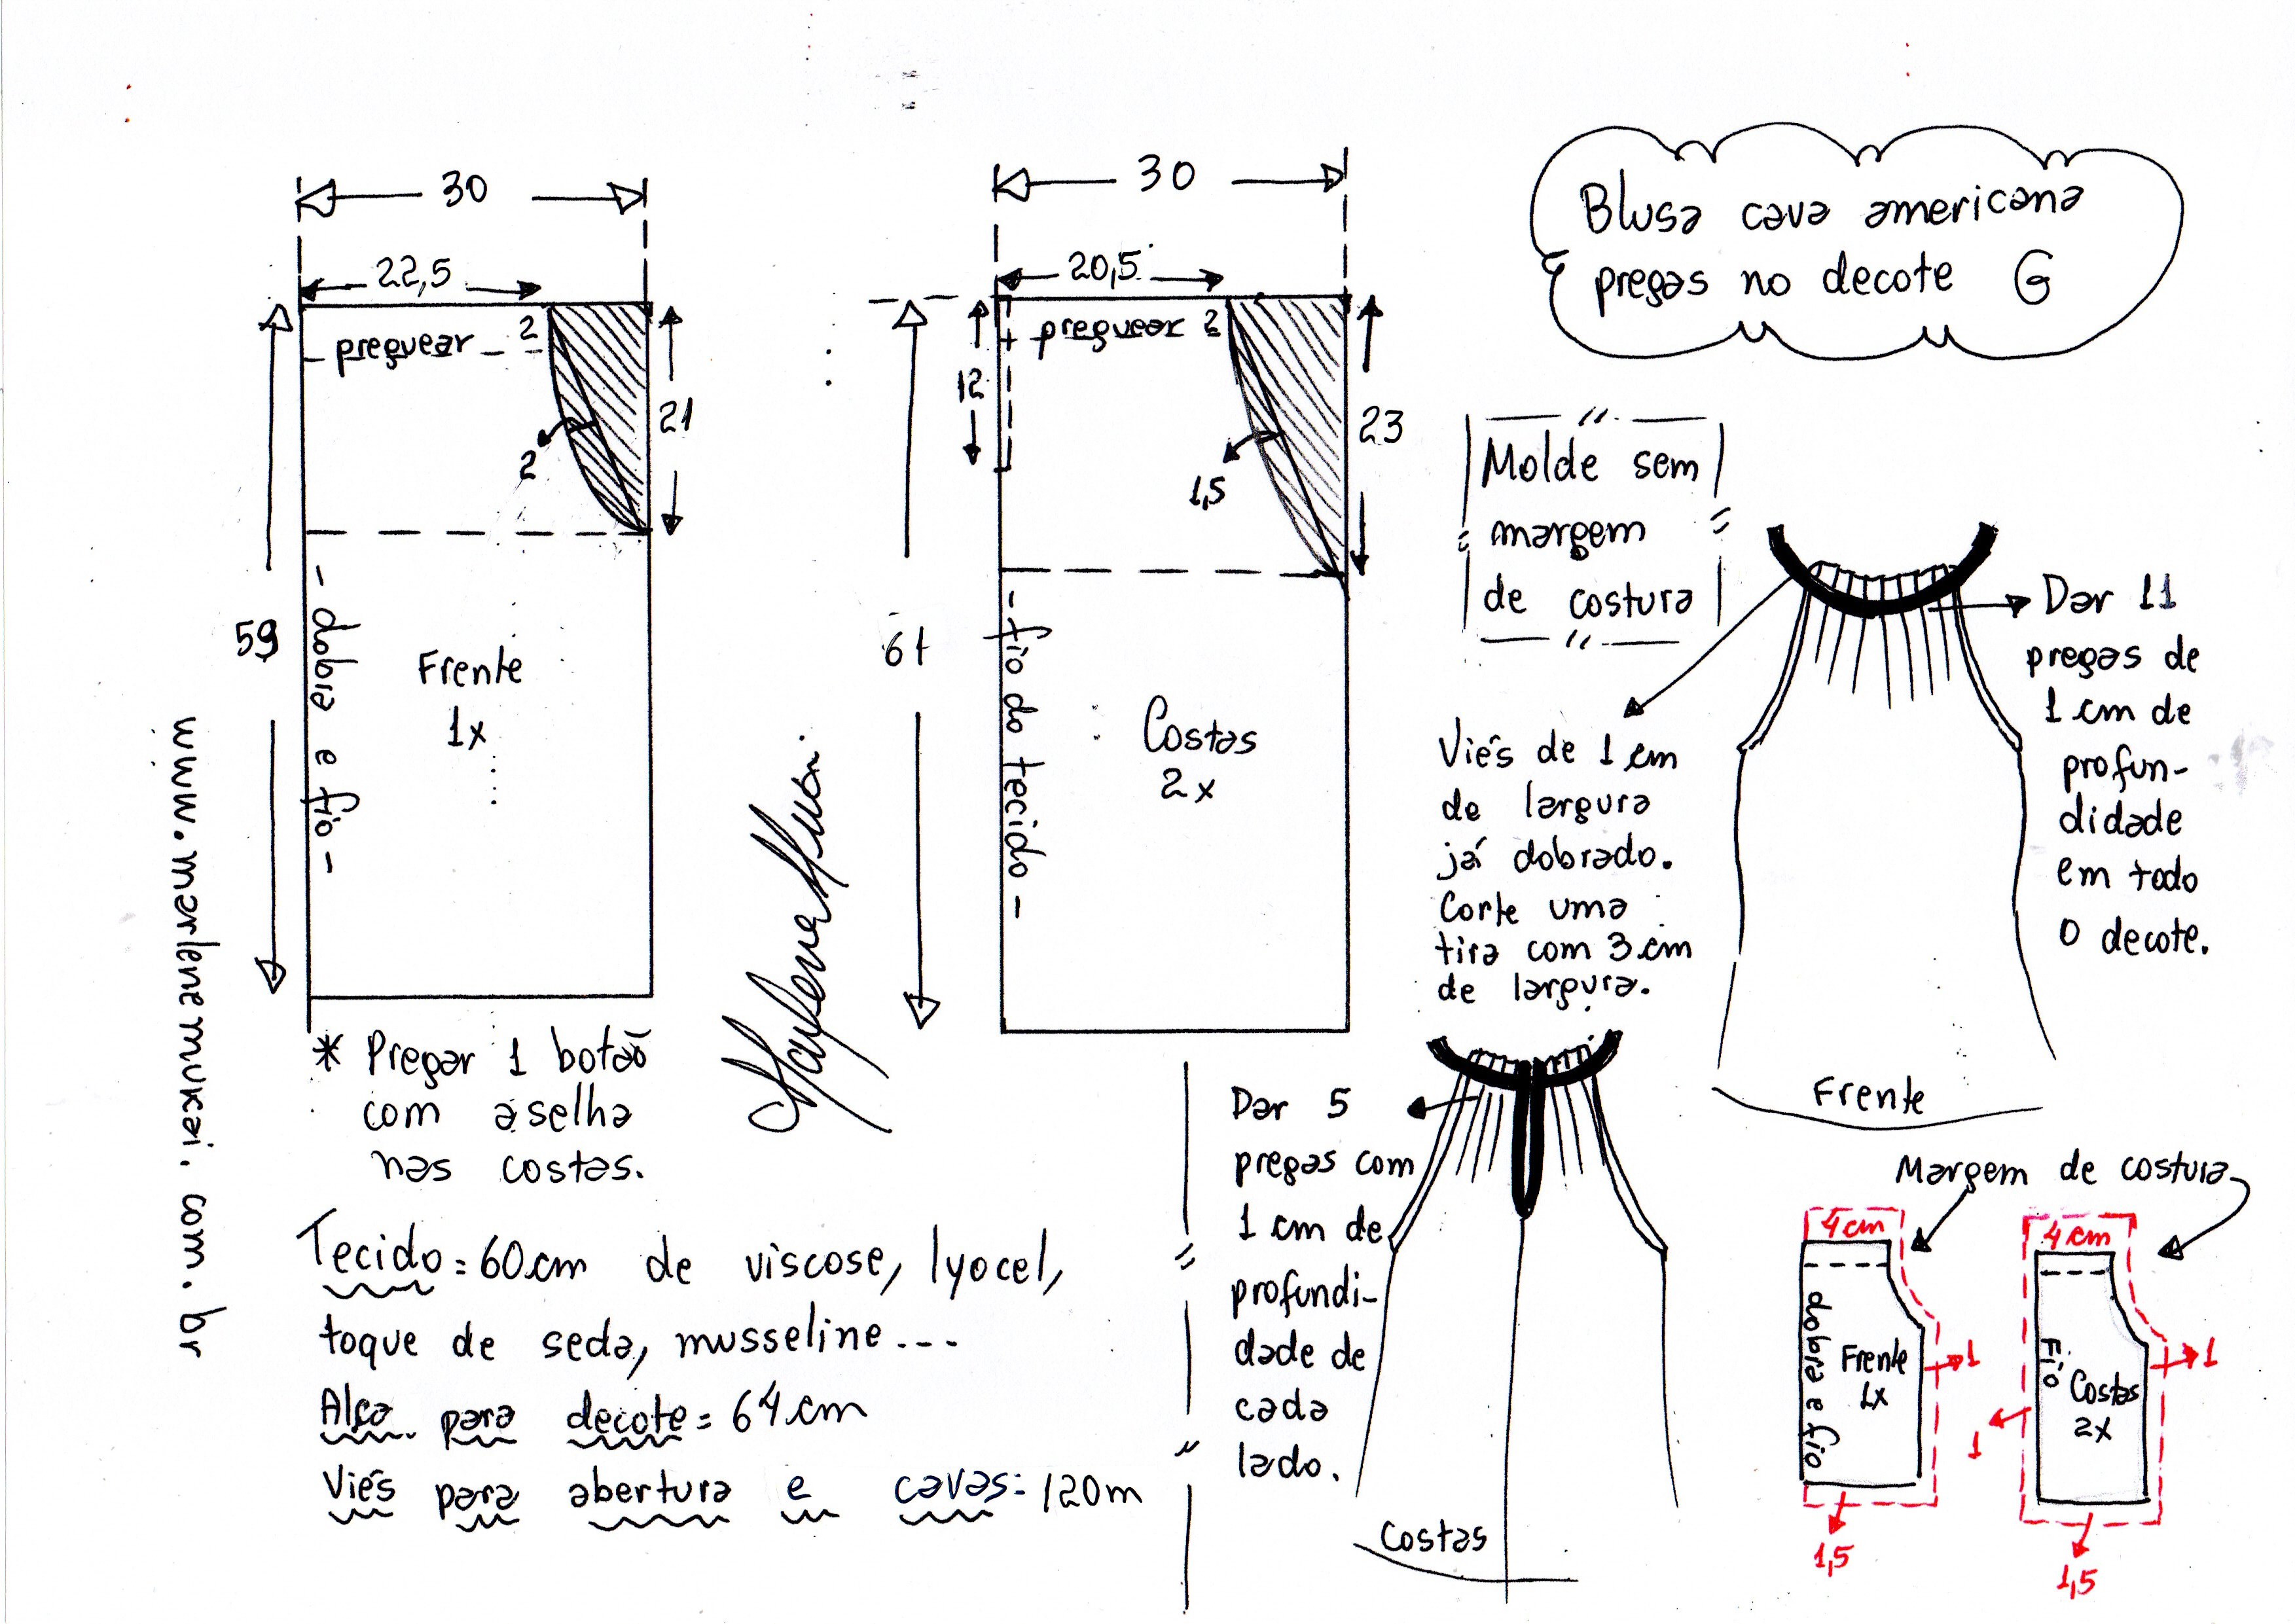 Blusa cava americana
pregas no decote G
30
22,5
preguear 2
21
2
59
- dobra e fio -
Frente
1x
30
20,5
preguear 2
12
23
1,5
61
- fio do tecido -
Costas
2x
Molde sem
margem
de costura
Dar 11
pregas de
1 cm de
profun-
didade
em todo
o decote.
Viés de 1 cm
de largura
já dobrado.
Corte uma
tira com 3 cm
de largura.
Frente
www.marlenemukai.com.br
* Pregar 1 botão
com aselha
nas costas.
Tecido = 60cm de viscose, lyocel,
toque de seda, musseline...
Alça para decote = 64 cm
Viés para abertura e cavas: 120m
Dar 5
pregas com
1 cm de
profundi-
dade de
cada
lado.
Costas
Margem de costura
4 cm
dobra e fio
Frente
1x
1
1,5
4 cm
Fio
Costas
2x
1
1
1,5